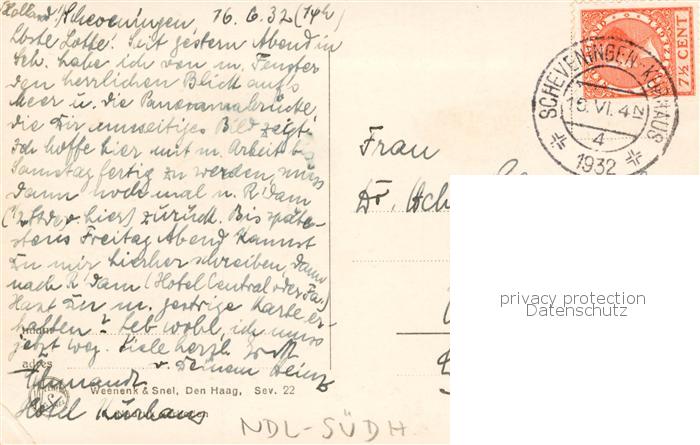 (Holland) Scheveningen, 16.6.32 (14h)
Liebste Lotte! Seit gestern Abend in
Sch. habe ich von m. Fenster
den herrlichen Blick aufs
Meer u. die Panoramabrücke
die Dir umseitiges Bild zeigt.
Ich hoffe hier mit m. Arbeit bis
Samstag fertig zu werden, muss
dann noch mal n. R'dam
(½ Std. v. hier) zurück. Bis späte-
stens Freitag Abend kannst
Du mir hierher schreiben, dann
nach R'dam (Hotel Central oder
Hast Du m. gestrige Karte er-
halten? Leb wohl, ich muss
jetzt weg. Viele herzl.
v. Deinem Heinz
adres
Hotel Kurhaus
Weenenk & Snel, Den Haag, Sev. 22
Frau
Dr.
7½ CENT
SCHEVENINGEN-KURHAUS
16.VI.4N
4
1932
privacy protection
Datenschutz
NDL-SÜDH